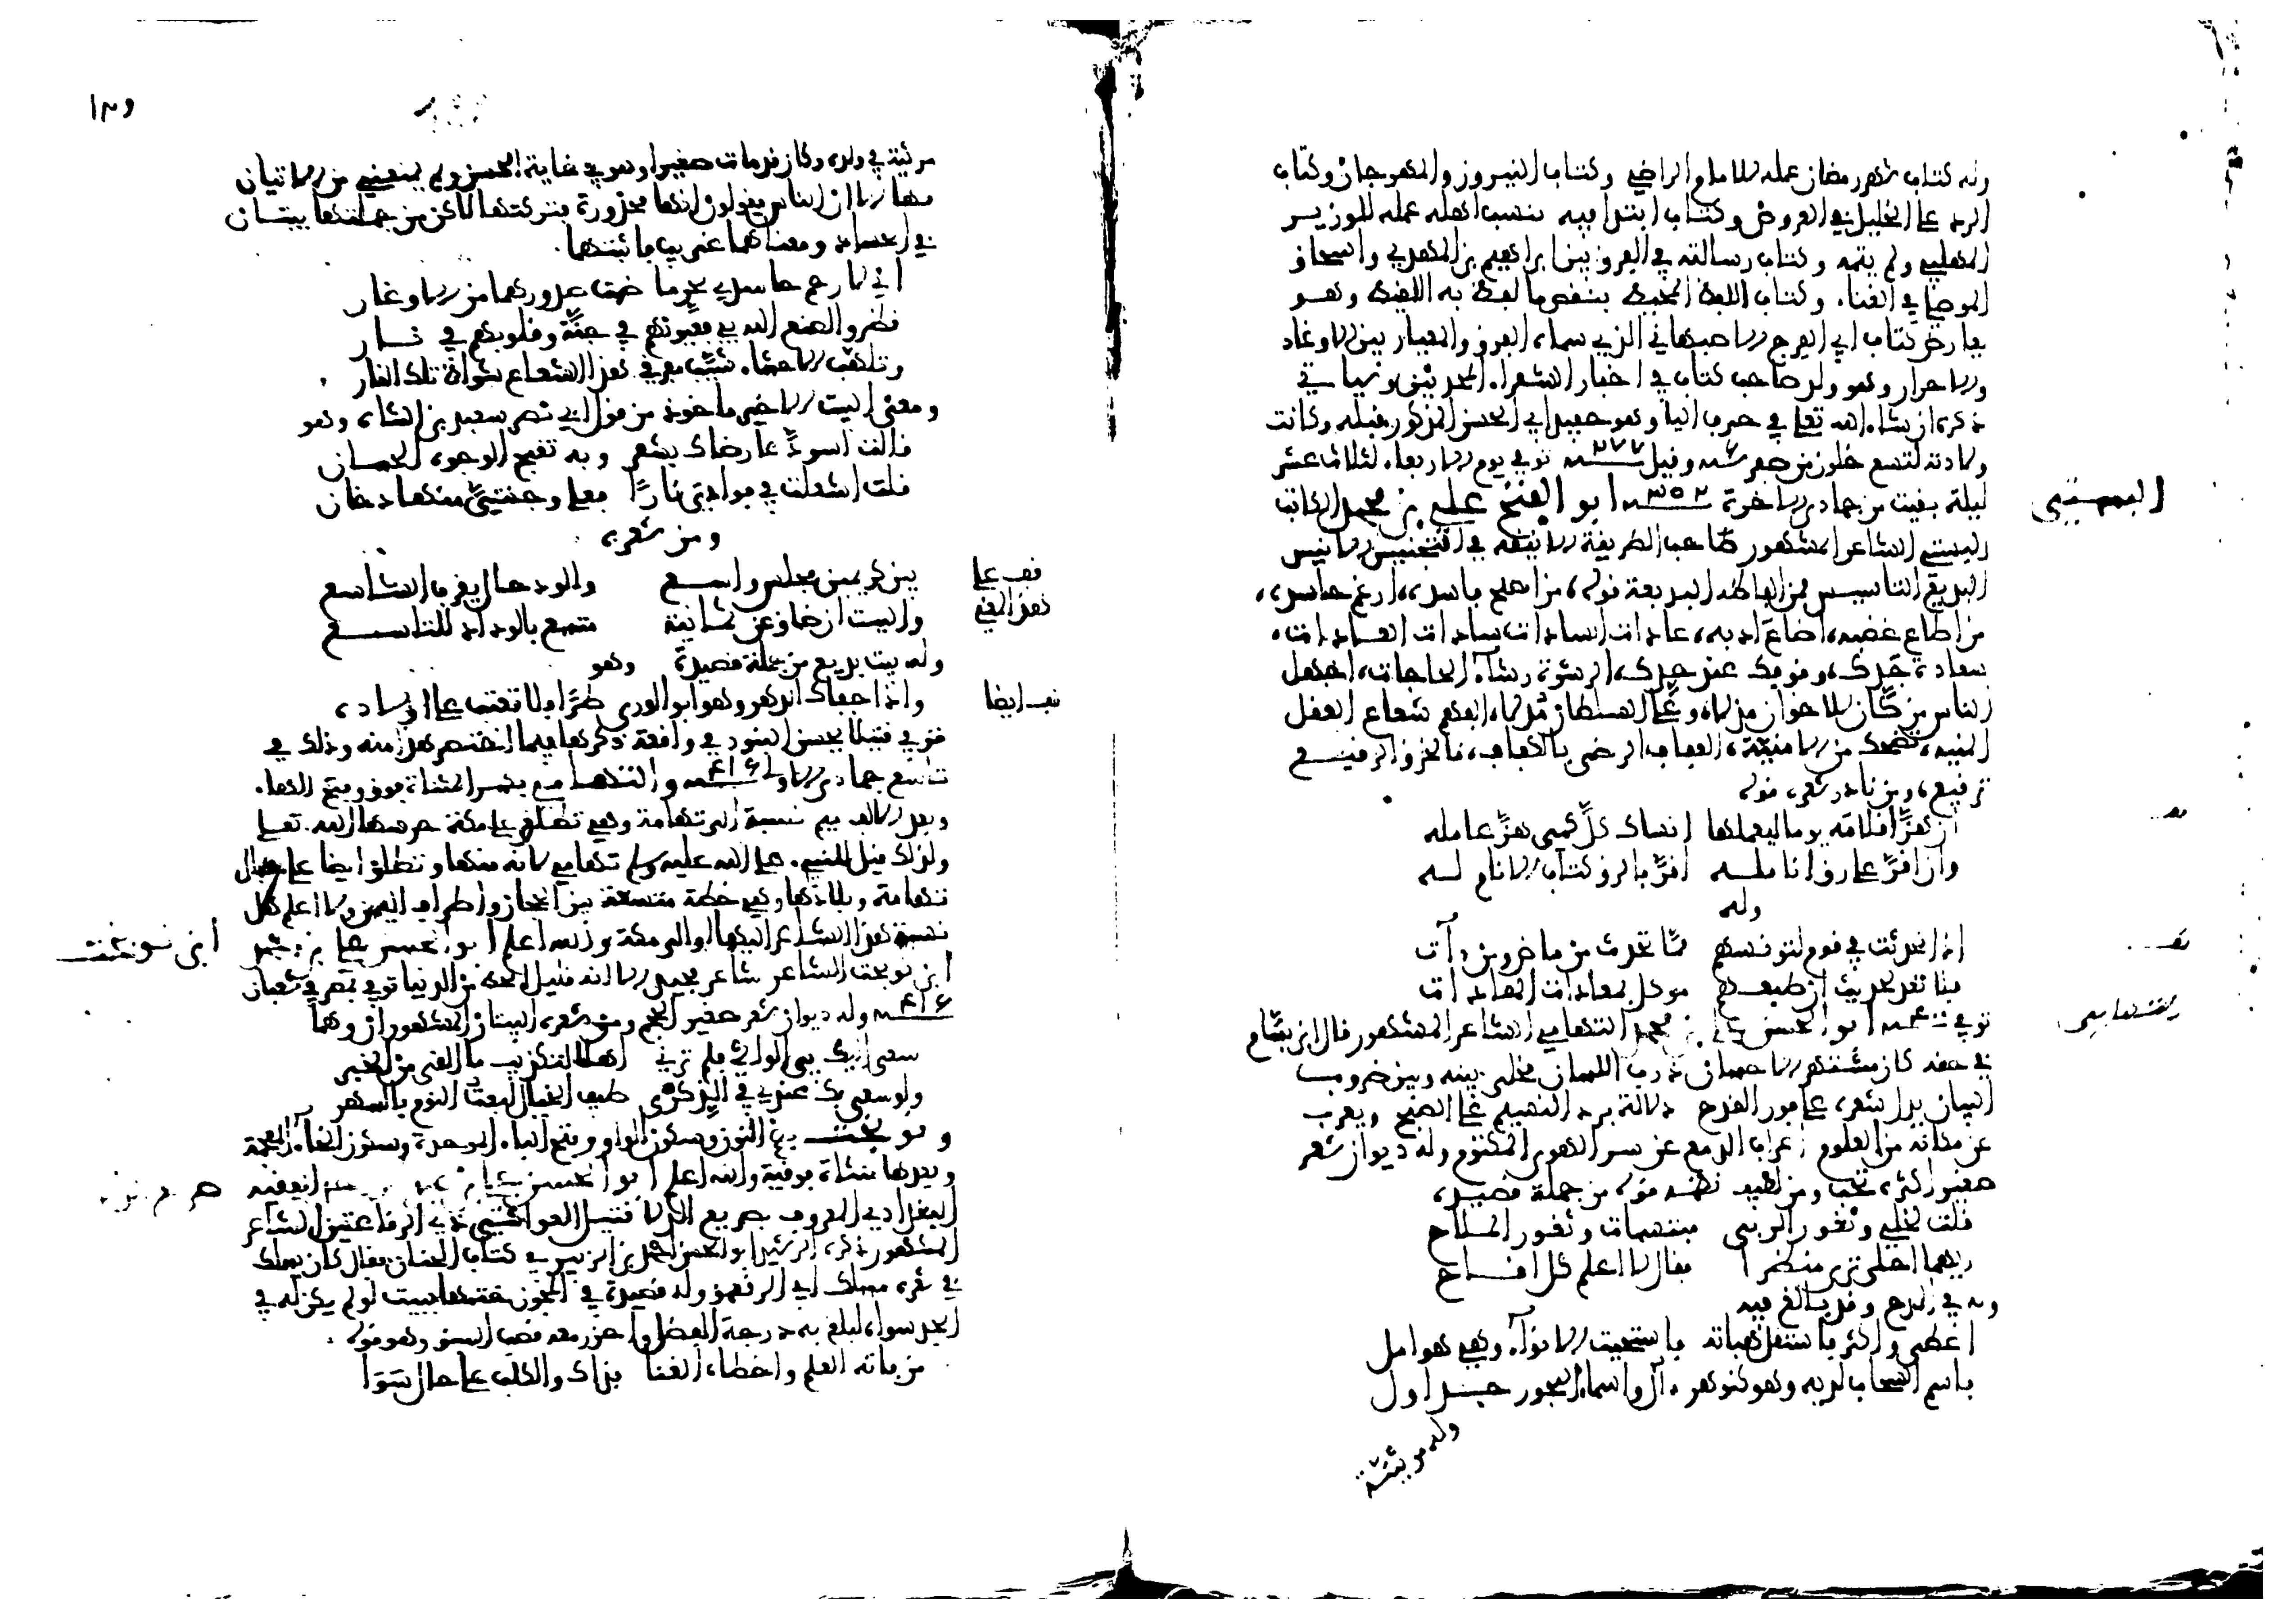 وله كتاب شهر رمضان عمله للامام الراضي وكتاب النيروز والمهرجان وكتاب
الرد على الخليل في العروض وكتاب ابتدا فيه بنسب اهله عمله للوزير
المهلبي ولم يتمه وكتاب رسالته في الفرق بين ابراهيم بن المهدي واسحاق
الموصلي في الغنا، وكتاب اللفظ المحيط بنقض ما لفظ به اللقيط وهو
يعارض كتاب ابي الفرج الاصبهاني الذي سماه الفرق والمعيار بين الاوغاد
والاحرار وهو ولد صاحب كتاب في اخبار الشعرا، المحدثين وياتي
ذكره ان شاء الله تعلى في حرب اليا وهو حفيد ابي الحسن المذكور قبله وكانت
ولادته لتسع خلون من صفر سنة وقيل سنة ٢٧٧ توفي يوم الاربعا، لثلاث عشر
ليلة بقيت من جمادى الاخرة سنة ٣٥٢ ابو الفتح علي بن محمد الكاتب
البستي
البستي الشاعر المشهور صاحب الطريقة الانيقة في التجنيس الانيس
البديع التاسيس فمن الفاظه البديعة قوله، من اصلح فاسده، ارغم حاسده،
من اطاع غضبه، اضاع ادبه، عادات السادات سادات العادات،
سعادة جدك، وقوفك عند حدك، الرشوة رشاء الحاجات، اجهل
الناس من كان للاخوان مذلا، وعلى السلطان مدلا، الفهم شعاع العقل
المنية، تضحك من الامنية، العفاف الرضى بالكفاف، ما لخرق الرقيع
ترقيع، ومن نادر شعره قوله
ان هز اقلامه يوما ليعملها انساك كل كمي هز عامله
وان اقر على رق انامله اقر بالرق كتاب الانام له
وله
اذا تحدثت في قوم لتونسهم بما تحدث من ماض ومن آت
فلا تعد لحديث ان طبعهم موكل بمعادات المعادات
توفي سنة ابو الحسن علي بن محمد التهامي الشاعر المشهور قال ابن بسام
التهامي
في حقه كان مشتهر الاحسان ذرب اللسان مخلى بينه وبين ضروب
البيان يدل شعره على فوز القدح دلالة برد النسيم على الصبح ويعرب
عن مكانه من العلوم اعراب الدمع عن سر الهوى المكتوم وله ديوان شعر
صغير اكثره نخب ومن لطيف نظمه قوله من جملة قصيدة
قلت لخلي وثغور الربى مبتسمات وثغور الملاح
ايهما احلى ترى منظرا فقال لا اعلم كل اقاح
وله في المدح وقد بالغ فيه
اعطى واكثر فاستقل هباته فاستحيت الانوآء وهي هوامل
فاسم السحاب لديه وهو كنهور آل واسماء البحور جداول
وله مرثية
١٣٩
مرثية في ولده وكان قد مات صغيرا وهو في غاية الحسن ولم يمنعني من الاتيان
بها الا ان الناس يقولون انها محزورة فتركتها لكن من جملتها بيتان
في الحساد ومعناهما غريب فاثبتهما
اني لارحم حاسدي لحر ما ضمت صدورهم من الاوغار
نظروا لصنع الله بي فعيونهم في جنة وقلوبهم في نار
وتلهب الاحشاء شيب مفرقي هذا الشعاع شواظ تلك النار
ومعنى البيت الاخير ماخوذ من قول ابي نصر سعيد بن الشاه، وهو
قالت اسود عارضاك بشعر وبه تقبح الوجوه الحسان
قلت اشعلت في فوادي نارا فعلى وجنتي منها دخان
ومن شعره
قف على بين كريمين مجلس واسع والود حال يقرب الشاسع
هذا المعنى والبيت ان ضاق عن ثمانية متسع بالوداد للتاسع
وله بيت بديع من جملة قصيدة وهو
قف ايضا واذا جفاك الدهر وهو ابو الورى طرا فلا تعتب على اولاده
توفي قتيلا بحسن البنود في واقعة ذكرها فيما اختصر هذا منه وذلك في
تاسع جمادى الاولى سنة ٤١٦ والتهامي بكسر المثناة فوق وفتح الهاء
وبعد الالف ميم نسبة الى تهامة وهي تطلق على مكة حرسها الله تعلى
ولذلك قيل للنبي صلى الله عليه وسلم تهامي لانه منها وتطلق ايضا على جبال
تهامة وبلادها وهي خطة متسعة بين الحجاز واطراف اليمن ولا اعلم هل
نسبة هذا الشاعر اليها او الى مكة والله اعلم ابو الحسن علي بن احمد
ابن نوبخت
ابن نوبخت الشاعر شاعر مجيد الا انه قليل الحظ من الدنيا توفي بمصر في شعبان
سنة ٤١٦ وله ديوان شعر صغير الحجم ومن شعره البيتان المشهوران وهما
سعى اليك بي الواشي فلم ترني اهلا لتكذيب ما القى من الخبر
ولو سعى بك عندي في الذ كرى طيف الخيال لبعت النوم بالسهر
ونوبخت بضم النون وسكون الواو وفتح الباء الموحدة وسكون الخاء المعجمة
وبعدها مثناة فوقية والله اعلم ابو الحسن علي بن الفقيه
البغدادي المعروف بصريع الدلا قتيل الغواشي ذي الرقاعتين الشاعر
المشهور ذكره الرشيد ابو الحسن احمد بن الزبير في كتاب الجنان فقال كان يسلك
في شعره مسلك ابي الرقعمق وله قصيدة في المجون ختمها ببيت لو لم يكن له في
الجد سواه لبلغ به درجة الفضل واحرز معه قصب السبق وهو قوله
من فاته العلم واخطاه الغنا فذاك والكلب على حال سوا